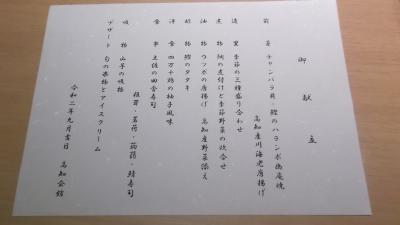 御献立
前菜 チャンバラ貝・鰹のハランボ幽庵焼
高知産川海老唐揚げ
造里 季節の三種盛り合わせ
煮物 鯛の煮付けと季節野菜の炊合せ
油物 ウツボの唐揚げ 高知産野菜添え
鰹のタタキ
洋食 四万十鶏の柚子風味
食事 土佐の田舎寿司
椎茸・茗荷・蒟蒻・鯖寿司
吸物 山芋の吸物
デザート 旬の果物とアイスクリーム
令和二年九月吉日 高知会館